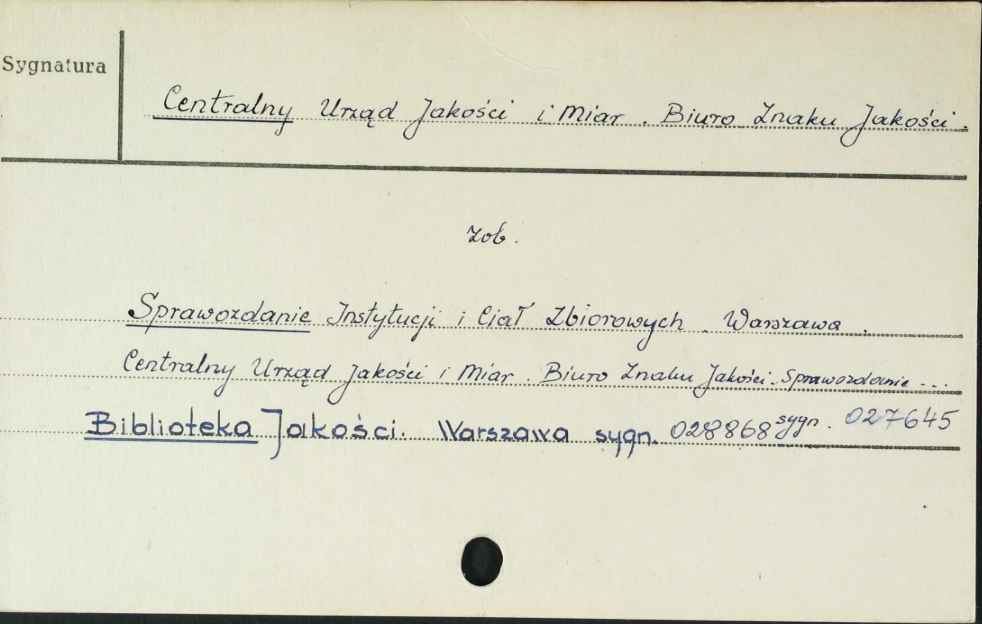 Sygnatura
Centralny Urząd Jakości i Miar. Biuro Znaku Jakości.
zob.
Sprawozdanie Instytucji i Ciał Zbiorowych. Warszawa.
Centralny Urząd Jakości i Miar. Biuro Znaku Jakości. Sprawozdanie...
Biblioteka Jakości. Warszawa sygn. 028868 sygn. 027645